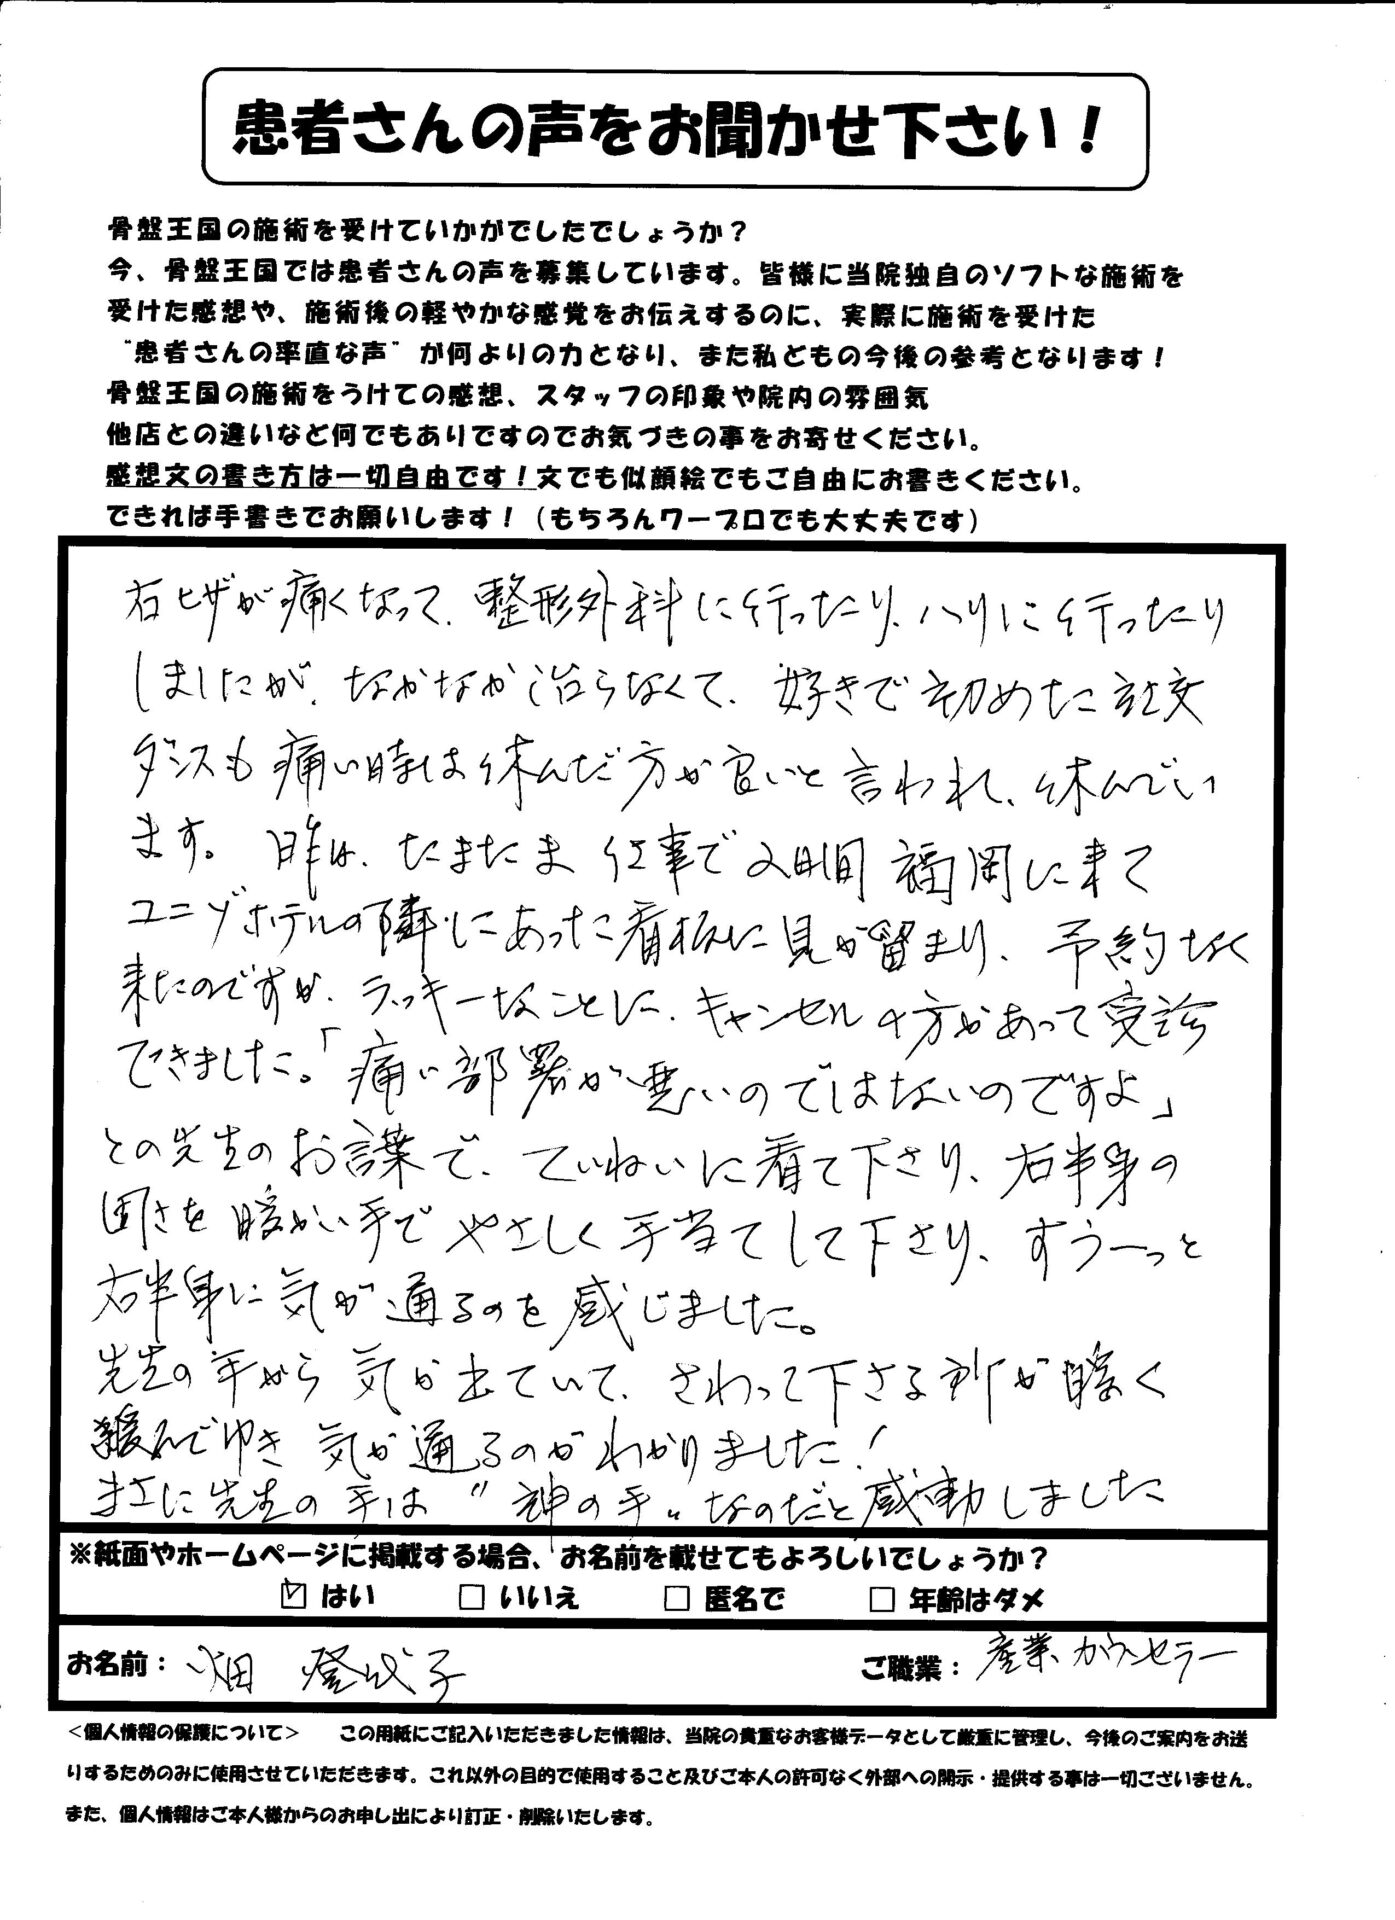 患者さんの声をお聞かせ下さい！
骨盤王国の施術を受けていかがでしたでしょうか？
今、骨盤王国では患者さんの声を募集しています。皆様に当院独自のソフトな施術を
受けた感想や、施術後の軽やかな感覚をお伝えするのに、実際に施術を受けた
“患者さんの率直な声”が何よりの力となり、また私どもの今後の参考となります！
骨盤王国の施術をうけての感想、スタッフの印象や院内の雰囲気
他店との違いなど何でもありですのでお気づきの事をお寄せください。
感想文の書き方は一切自由です！文でも似顔絵でもご自由にお書きください。
できれば手書きでお願いします！（もちろんワープロでも大丈夫です）
右ヒザが痛くなって、整形外科に行ったり、ハリに行ったり
しましたが、なかなか治らなくて、好きで初めた社交
ダンスも痛い時は休んだ方が良いと言われ、休んでい
ます。昨は、たまたま仕事で2日間福岡に来て
ユニゾホテルの隣にあった看板に見が留まり、予約なく
来たのですが、ラッキーなことに、キャンセルの方があって受診
できました。「痛い部署が悪いのではないのですよ」
との先生のお言葉で、ていねいに看て下さり、右半身の
固さを暖かい手でやさしく手当てして下さり、すうーっと
右半身に気が通るのを感じました。
先生の手から気が出ていて、さわって下さる所が暖く
緩んでゆき気が通るのがわかりました！
まさに先生の手は“神の手”なのだと感動しました
※紙面やホームページに掲載する場合、お名前を載せてもよろしいでしょうか？
☑はい □いいえ □匿名で □年齢はダメ
お名前：畑 澄代子 ご職業：産業カウンセラー
＜個人情報の保護について＞ この用紙にご記入いただきました情報は、当院の貴重なお客様データとして厳重に管理し、今後のご案内をお送
りするためのみに使用させていただきます。これ以外の目的で使用すること及びご本人の許可なく外部への開示・提供する事は一切ございません。
また、個人情報はご本人様からのお申し出により訂正・削除いたします。